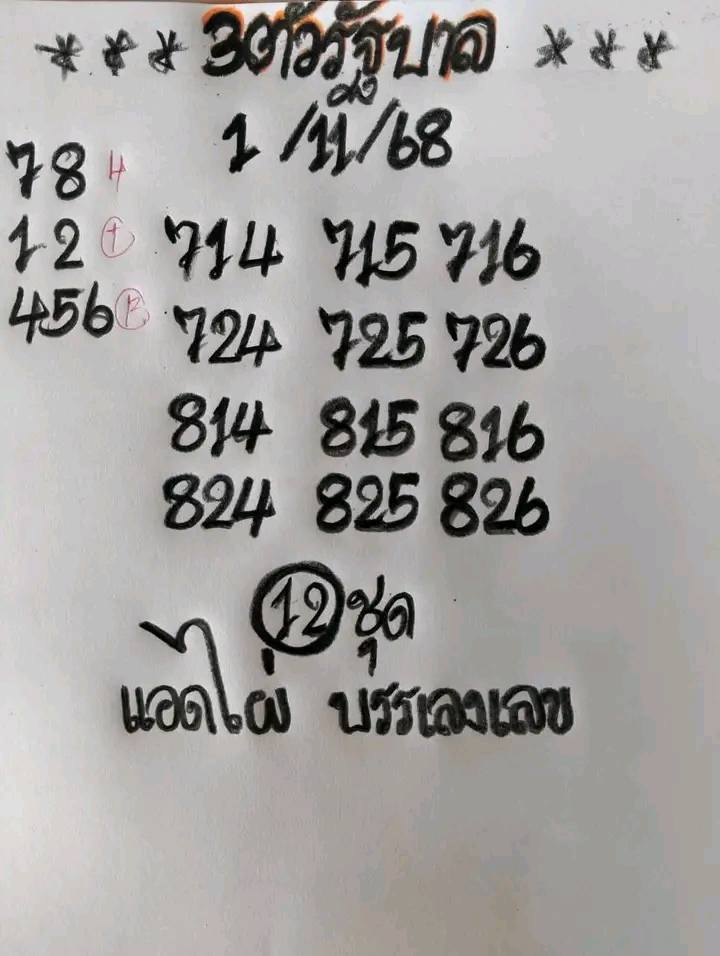 *** 3ตัวรัฐบาล ***
1/11/68
78
12
456
714 715 716
724 725 726
814 815 816
824 825 826
12 ชุด
แอดไผ่ บรรเลงเลข